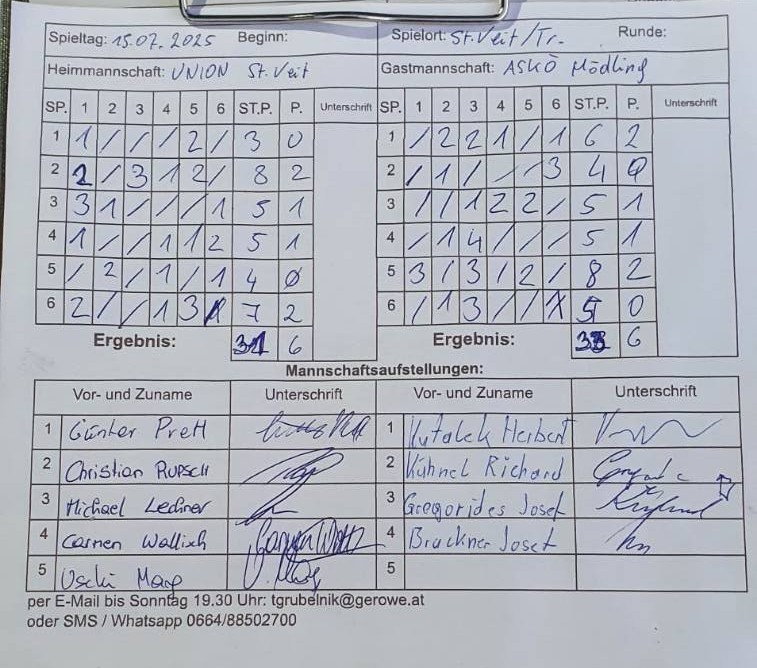 Spieltag: 15.07.2025 Beginn: Spielort: St.Veit/Tr. Runde:
Heimmannschaft: UNION St.Veit Gastmannschaft: ASKÖ Mödling
SP. 1 2 3 4 5 6 ST.P. P. Unterschrift SP. 1 2 3 4 5 6 ST.P. P. Unterschrift
1 1 / / / 2 / 3 0 1 / 2 2 1 / 1 6 2
2 2 / 3 1 2 / 8 2 2 / 1 / / / 3 4 0
3 3 1 / / / 1 5 1 3 / / 1 2 2 / 5 1
4 1 / / 1 1 2 5 1 4 / 1 4 / / / 5 1
5 / 2 / 1 / 1 4 0 5 3 / 3 / 2 / 8 2
6 2 / / 1 3 1 7 2 6 / 1 3 / / 1 5 0
Ergebnis: 6 Ergebnis: 33 6
Mannschaftsaufstellungen:
Vor- und Zuname Unterschrift Vor- und Zuname Unterschrift
1 Günter Prett 1 Kutalek Herbert
2 Christian Rupsch 2 Kühnel Richard
3 Michael Lechner 3 Gregorides Josef
4 Carmen Wallisch 4 Bruckner Josef
5 Uschi Mang 5
per E-Mail bis Sonntag 19.30 Uhr: tgrubelnik@gerowe.at
oder SMS / Whatsapp 0664/88502700